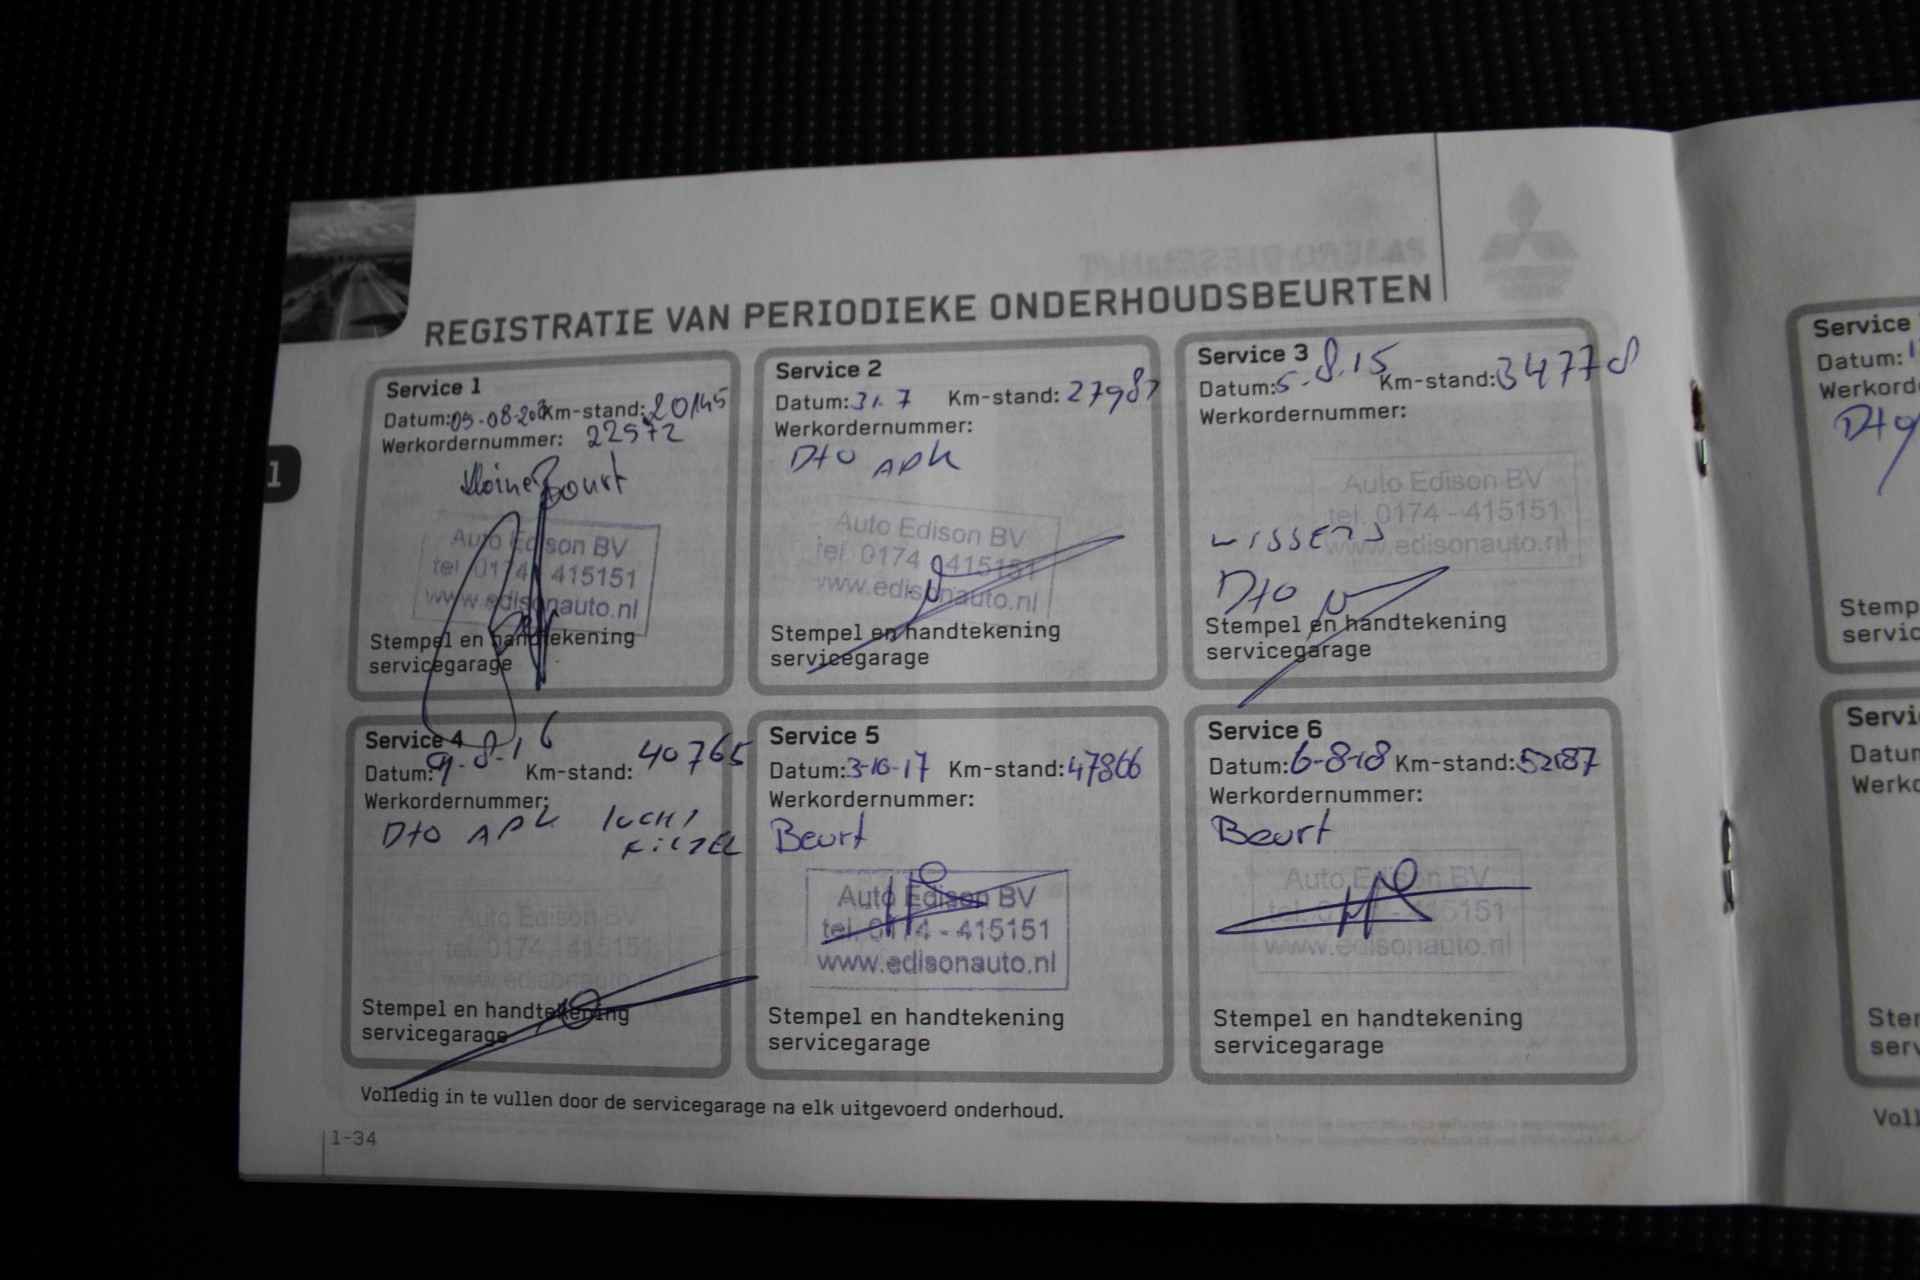 REGISTRATIE VAN PERIODIEKE ONDERHOUDSBEURTEN
Service 1
Datum: Km-stand: 20145
Werkordernummer: 22572
kleine Beurt
Auto Edison BV
tel. 0174 - 415151
www.edisonauto.nl
Stempel en handtekening
servicegarage
Service 2
Datum: 31.7 Km-stand: 27987
Werkordernummer:
Dto APK
Auto Edison BV
tel. 0174 - 415151
www.edisonauto.nl
Stempel en handtekening
servicegarage
Service 3
Datum: 5.8.15 Km-stand: 34778
Werkordernummer:
Auto Edison BV
tel. 0174 - 415151
www.edisonauto.nl
WISSERS
Dto
Stempel en handtekening
servicegarage
Service 4
Datum: 9-8-16 Km-stand: 40765
Werkordernummer:
Dto APK LUCHT
FILTER
Auto Edison BV
tel. 0174 - 415151
www.edisonauto.nl
Stempel en handtekening
servicegarage
Service 5
Datum: 3-10-17 Km-stand: 47866
Werkordernummer:
Beurt
Auto Edison BV
tel. 0174 - 415151
www.edisonauto.nl
Stempel en handtekening
servicegarage
Service 6
Datum: 6-8-18 Km-stand: 52187
Werkordernummer:
Beurt
Auto Edison BV
tel. 0174 - 415151
www.edisonauto.nl
Stempel en handtekening
servicegarage
Volledig in te vullen door de servicegarage na elk uitgevoerd onderhoud.
1-34
1
Service
Datum:
Werkord
Dto
Stemp
servic
Servi
Datum
Werko
Stem
serv
Voll